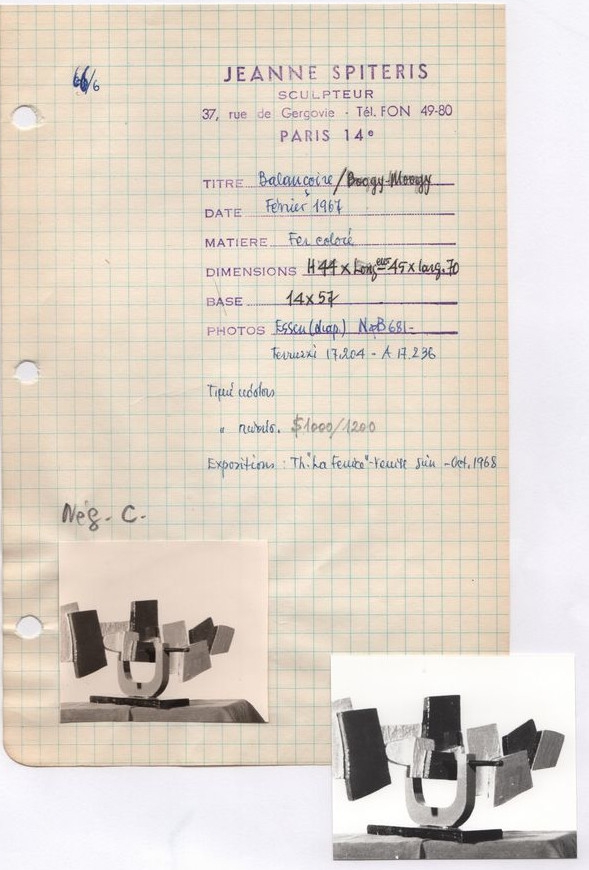 66/6
JEANNE SPITERIS
SCULPTEUR
37, rue de Gergovie - Tél. FON 49-80
PARIS 14e
TITRE Balançoire / Boogy-Woogy
DATE Février 1967
MATIERE Fer coloré
DIMENSIONS H 44 x Longueur 45 x larg. 70
BASE 14 x 57
PHOTOS Essen (diap.) N&B 681-
17.204 - A 17.236
" $1000/1200
Expositions : Th. "La Fenice" - Venise Juin - Oct. 1968
Nég. C.